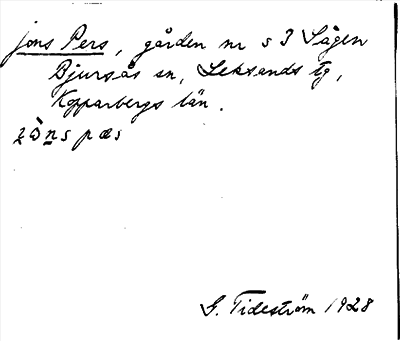 Jons Pers, gården nr s 3 Sågen
Bjursås sn, Leksands tg,
Kopparbergs län.
pæs
G. Tideström 1928